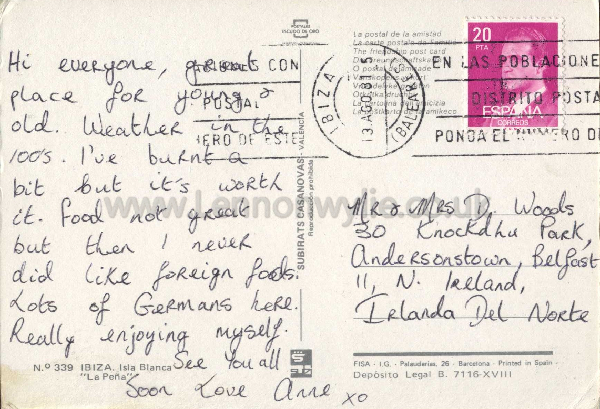 POSTALES
ESCUDO DE ORO
La postal de la amistad
La carte postale de l'amitié
The friendship post card
20
PTA
ESPAÑA
CORREOS
IBIZA
(BALEARES)
EN LAS POBLACIONE
DISTRITO POSTA
PONGA EL NUMERO DE
POSTAL
Hi everyone, great
place for young &
old. Weather in the
100's. I've burnt a
bit but it's worth
it. Food not great
but then I never
did like foreign foods.
Lots of Germans here.
Really enjoying myself.
See You all
Soon Love Anne xo
SUBIRATS CASANOVAS - VALENCIA
Reproducción prohibida
Mr & Mrs D. Woods
30 Knockdhu Park,
Andersonstown, Belfast
11, N. Ireland,
Irlanda Del Norte
N.º 339 IBIZA. Isla Blanca
"La Peña"
FISA - I.G. - Palaudarias, 26 - Barcelona - Printed in Spain -
Depósito Legal B. 7116-XVIII